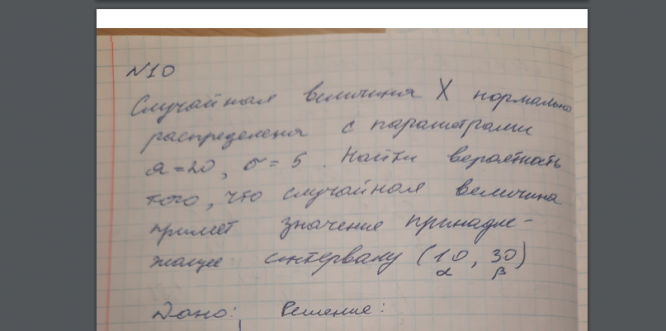 N10
Случайная величина X нормально
распределена с параметрами
a=20, σ=5. Найти вероятность
того, что случайная величина
примет значение принадле-
жащее интервалу (10, 30)
α β
Дано: Решение: